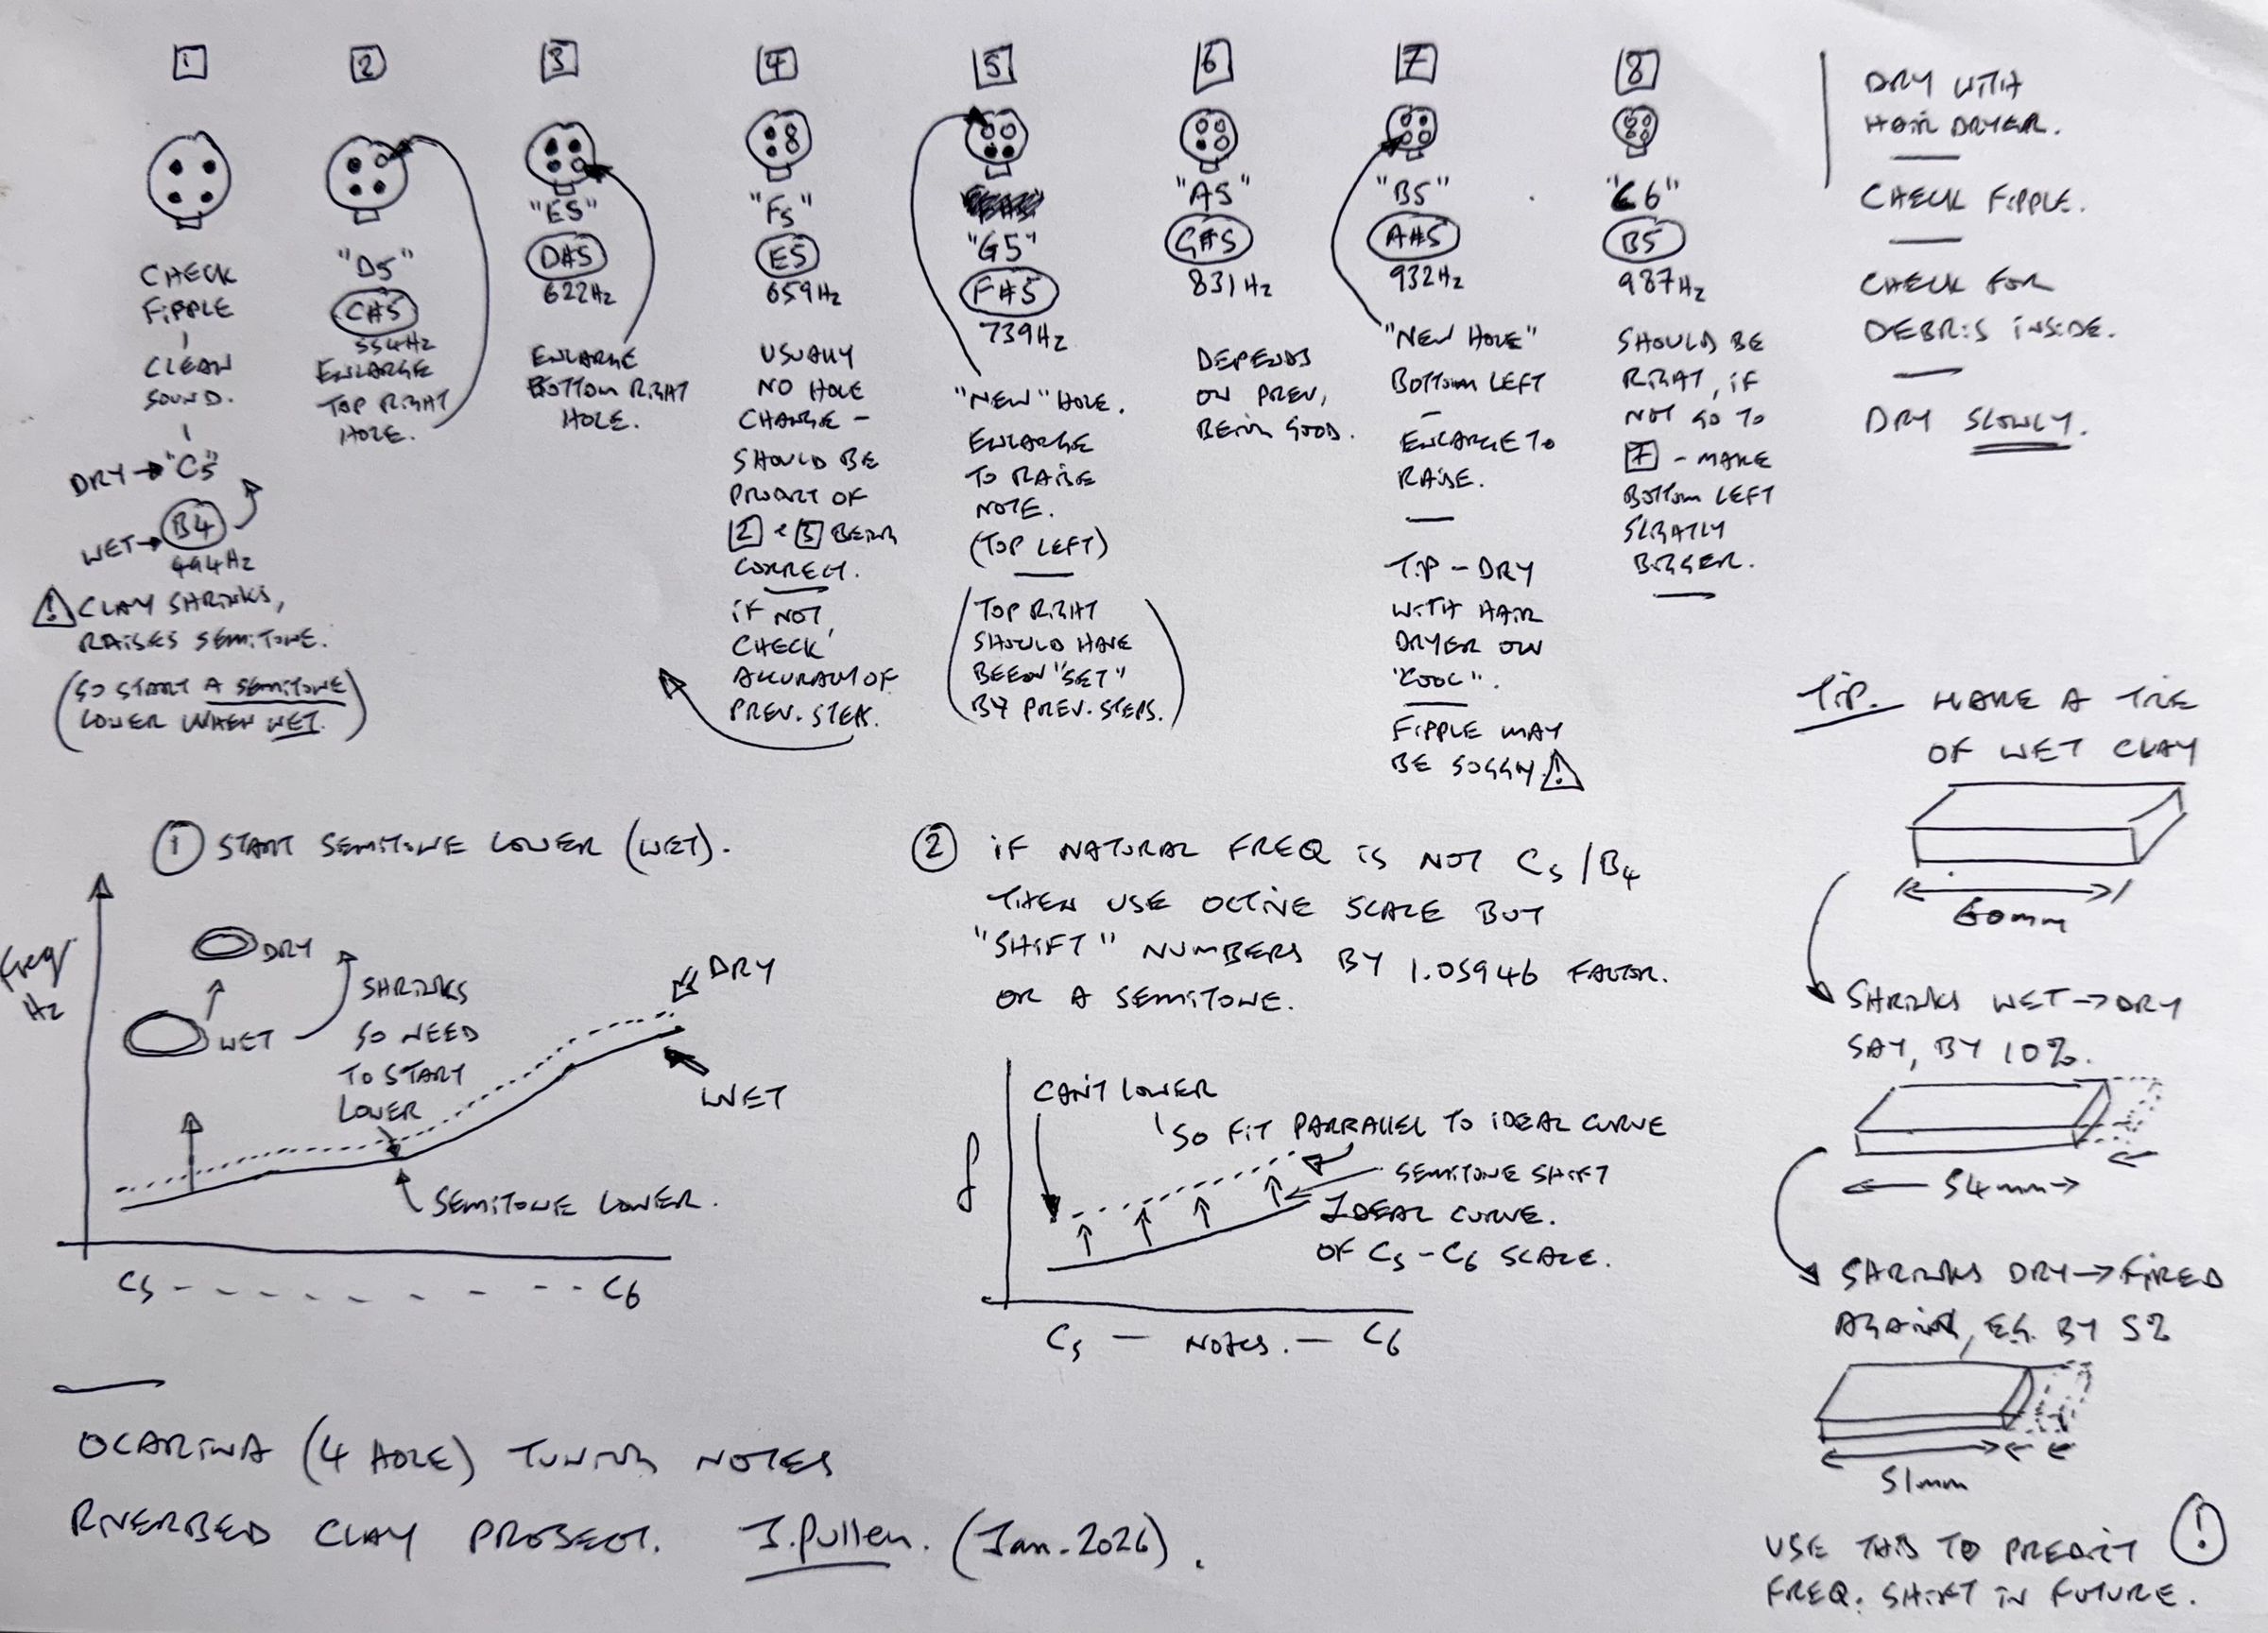 1
CHECK
FIPPLE
CLEAN
SOUND.
DRY → "C5"
WET → B4
494Hz
⚠ CLAY SHRINKS,
RAISES SEMITONE.
(SO START A SEMITONE
LOWER WHEN WET.)
2
"D5"
C#5
554Hz
ENLARGE
TOP RIGHT
HOLE.
3
"E5"
D#5
622Hz
ENLARGE
BOTTOM RIGHT
HOLE.
4
"F5"
E5
659Hz
USUALLY
NO HOLE
CHANGE -
SHOULD BE
PRODUCT OF
2 & 3 BEING
CORRECT.
IF NOT,
CHECK
ACCURACY OF
PREV. STEPS.
5
"G5"
F#5
739Hz
"NEW" HOLE.
ENLARGE
TO RAISE
NOTE.
(TOP LEFT)
(TOP RIGHT
SHOULD HAVE
BEEN "SET"
BY PREV. STEPS.)
6
"A5"
G#5
831Hz
DEPENDS
ON PREV,
BEING GOOD.
7
"B5"
A#5
932Hz
"NEW HOLE"
BOTTOM LEFT
-
ENLARGE TO
RAISE.
TIP - DRY
WITH HAIR
DRYER ON
"COOL".
FIPPLE MAY
BE SOGGY. ⚠
8
"C6"
B5
987Hz
SHOULD BE
RIGHT, IF
NOT GO TO
7 - MAKE
BOTTOM LEFT
SLIGHTLY
BIGGER.
DRY WITH
HAIR DRYER.
CHECK FIPPLE.
CHECK FOR
DEBRIS INSIDE.
DRY SLOWLY.
TIP. MAKE A TILE
OF WET CLAY
60mm
SHRINKS WET → DRY
SAY, BY 10%.
54mm
SHRINKS DRY → FIRED
AGAIN, E.G. BY 5%
51mm
USE THIS TO PREDICT !
FREQ. SHIFT IN FUTURE.
1 START SEMITONE LOWER (WET).
Freq/
Hz
DRY
WET
SHRINKS
SO NEED
TO START
LOWER
DRY
WET
SEMITONE LOWER.
C5 - - - - - - - - C6
2 IF NATURAL FREQ IS NOT C5/B4
THEN USE OCTIVE SCALE BUT
"SHIFT" NUMBERS BY 1.05946 FACTOR.
OR A SEMITONE.
CAN'T LOWER
SO FIT PARRALLEL TO IDEAL CURVE
SEMITONE SHIFT
IDEAL CURVE.
OF C5 - C6 SCALE.
f
C5 — NOTES. — C6
OCARINA (4 HOLE) TUNING NOTES
RIVERBED CLAY PROJECT. J.Pullen. (Jan. 2026).